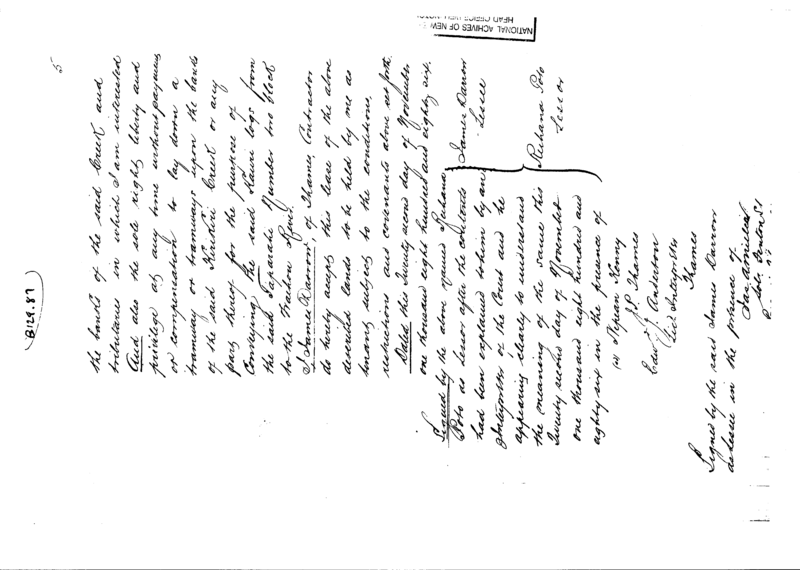 5
the banks of the said Creek and
tributaries in which I am interested
And also the sole right, liberty and
privilege at any time without payment
or compensation to lay down a
tramway or tramways upon the banks
of the said Creek or any
part thereof for the purpose of
Conveying the said Kauri logs from
the said Taparahi Number two block
to the River
I James Darrow, of Thames, Contractor
do hereby accept this lease of the above
described lands to be held by me as
tenant, subject to the conditions,
restrictions and covenants above set forth.
Dated this Twenty second day of November
one thousand eight hundred and eighty six.
Signed by the above named Rihana
Poto as Lessor after the contents
had been explained to him by an
Interpreter of the Court and he
appearing clearly to understand
the meaning of the same this
Twenty second day of November
one thousand eight hundred and
eighty six in the presence of
James Darrow
Lessee
Rihana Poto
Lessor
J.P. Thames
Edw. Anderson
Lic Interpreter
Thames
Signed by the said James Darrow
as Lessee in the presence of
B129.87
NATIONAL ACHIVES OF NEW
HEAD OFFICE